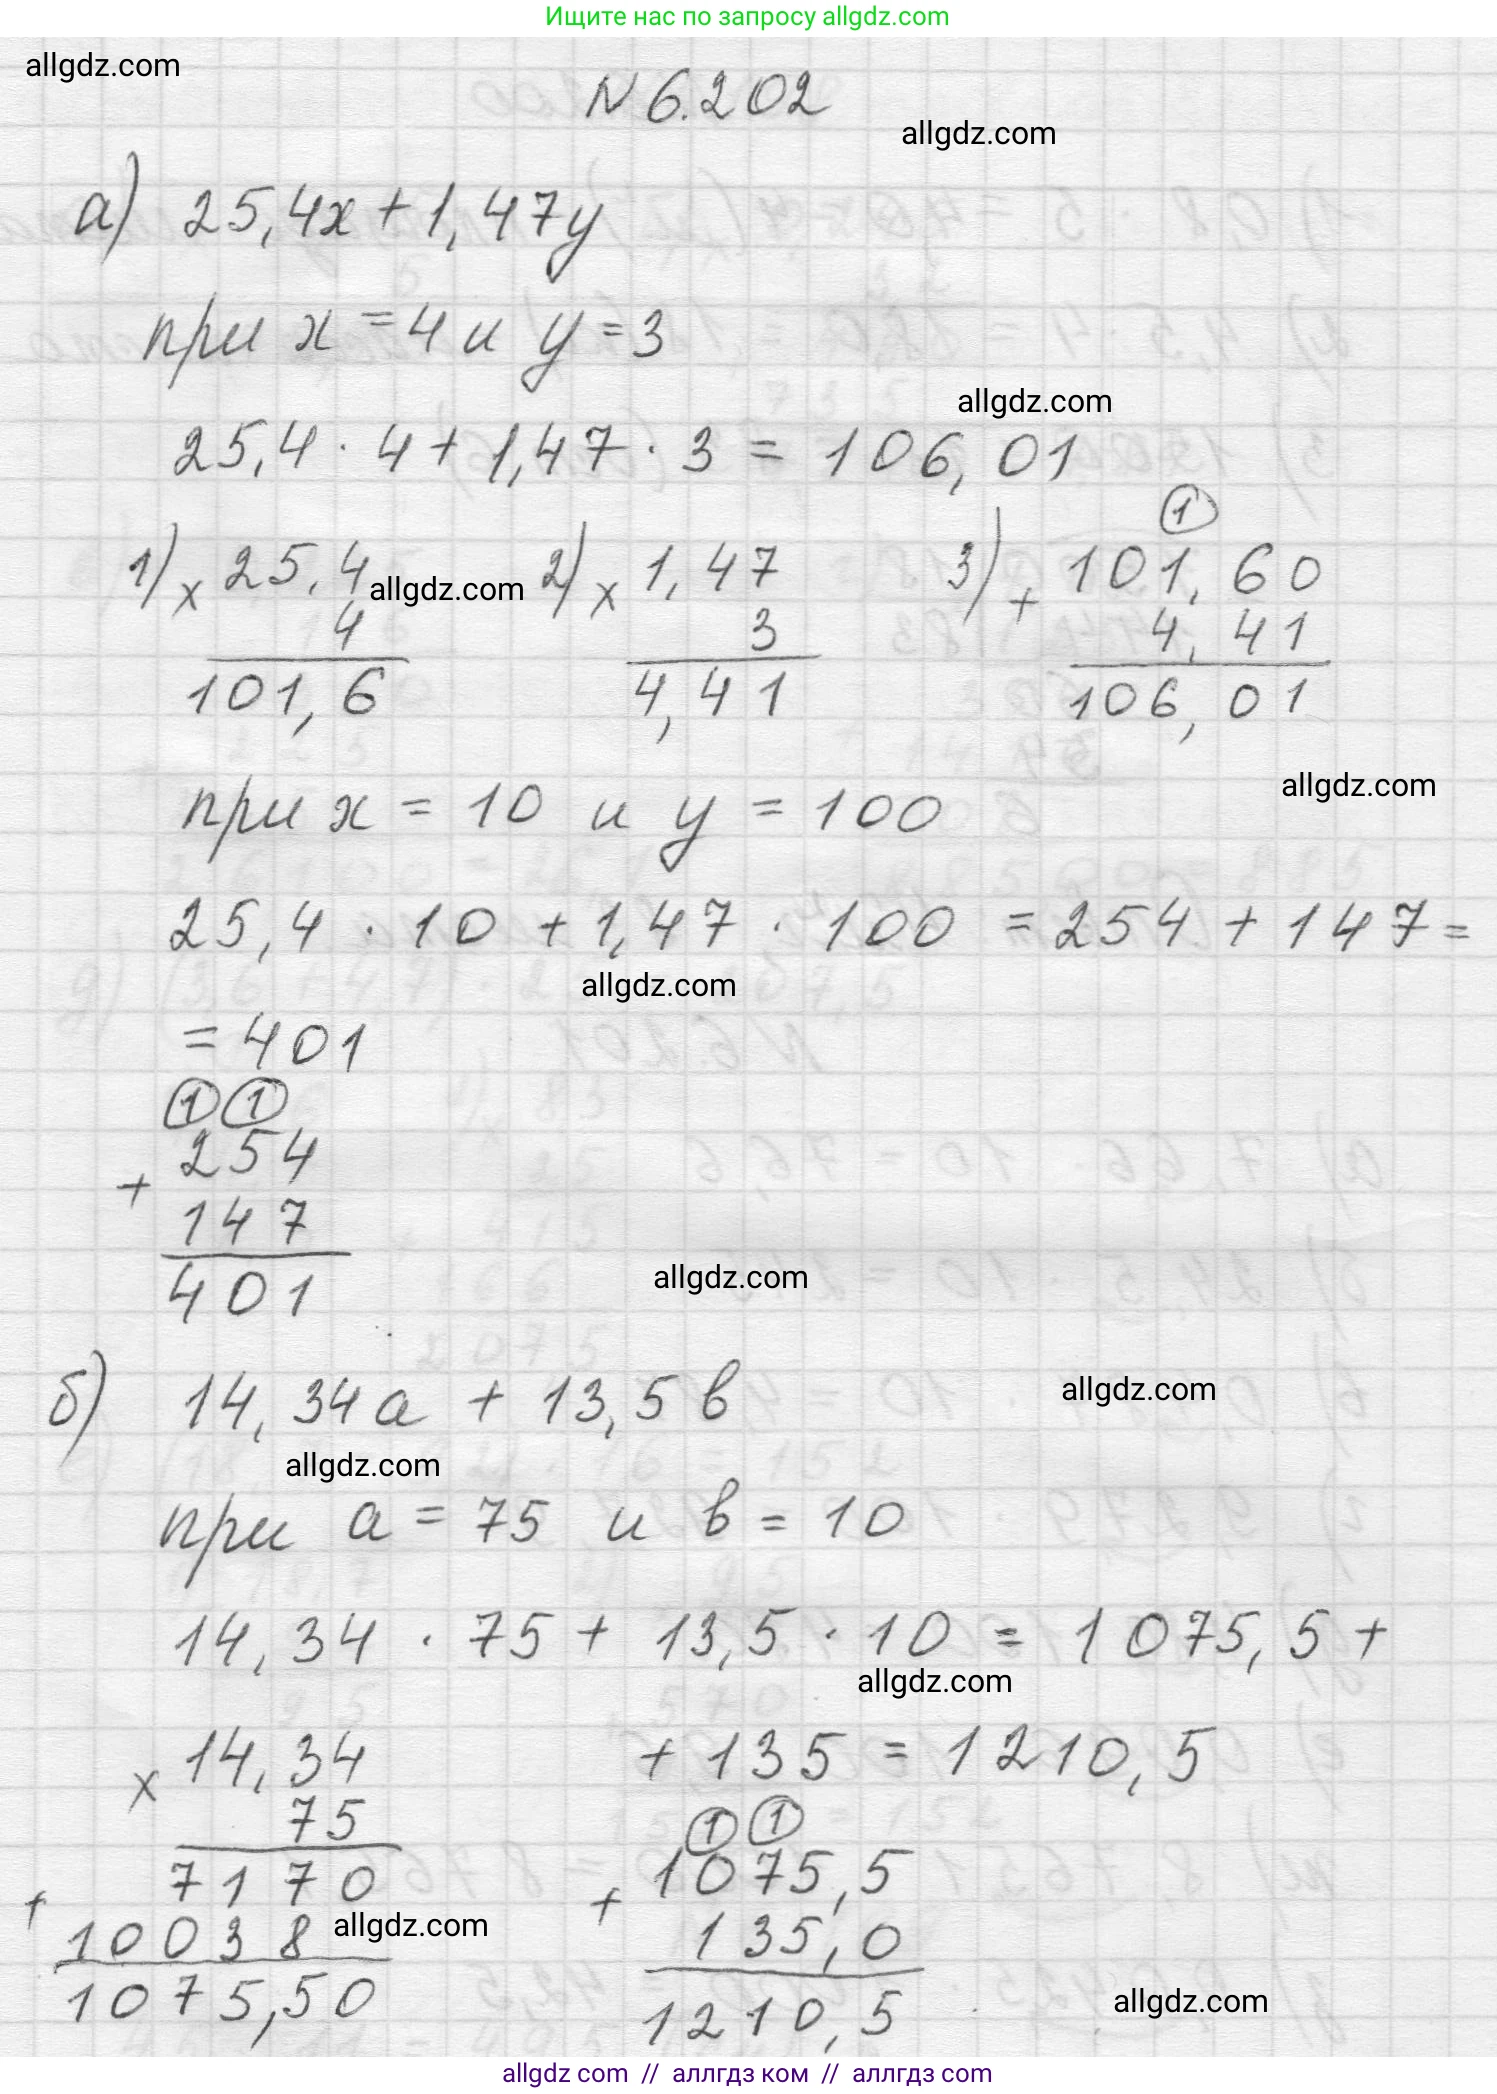 Ищите нас по запросу allgdz.com
allgdz.com
N 6.202
allgdz.com
а) 25,4x + 1,47y
при x = 4 и y = 3
allgdz.com
25,4 · 4 + 1,47 · 3 = 106,01
1) × 25,4 allgdz.com 2) × 1,47 3) + 101,60
① 
4 3 4,41
101,6 4,41 106,01
allgdz.com
при x = 10 и y = 100
25,4 · 10 + 1,47 · 100 = 254 + 147 =
allgdz.com
= 401
① ①
+ 254
147
401
allgdz.com
б) 14,34a + 13,5b
allgdz.com
allgdz.com
при a = 75 и b = 10
14,34 · 75 + 13,5 · 10 = 1075,5 +
allgdz.com
+ 135 = 1210,5
× 14,34
75
7170
+ 10038
allgdz.com
1075,50
① ①
+ 1075,5
135,0
1210,5
allgdz.com
allgdz.com // аллгдз ком // аллгдз.com